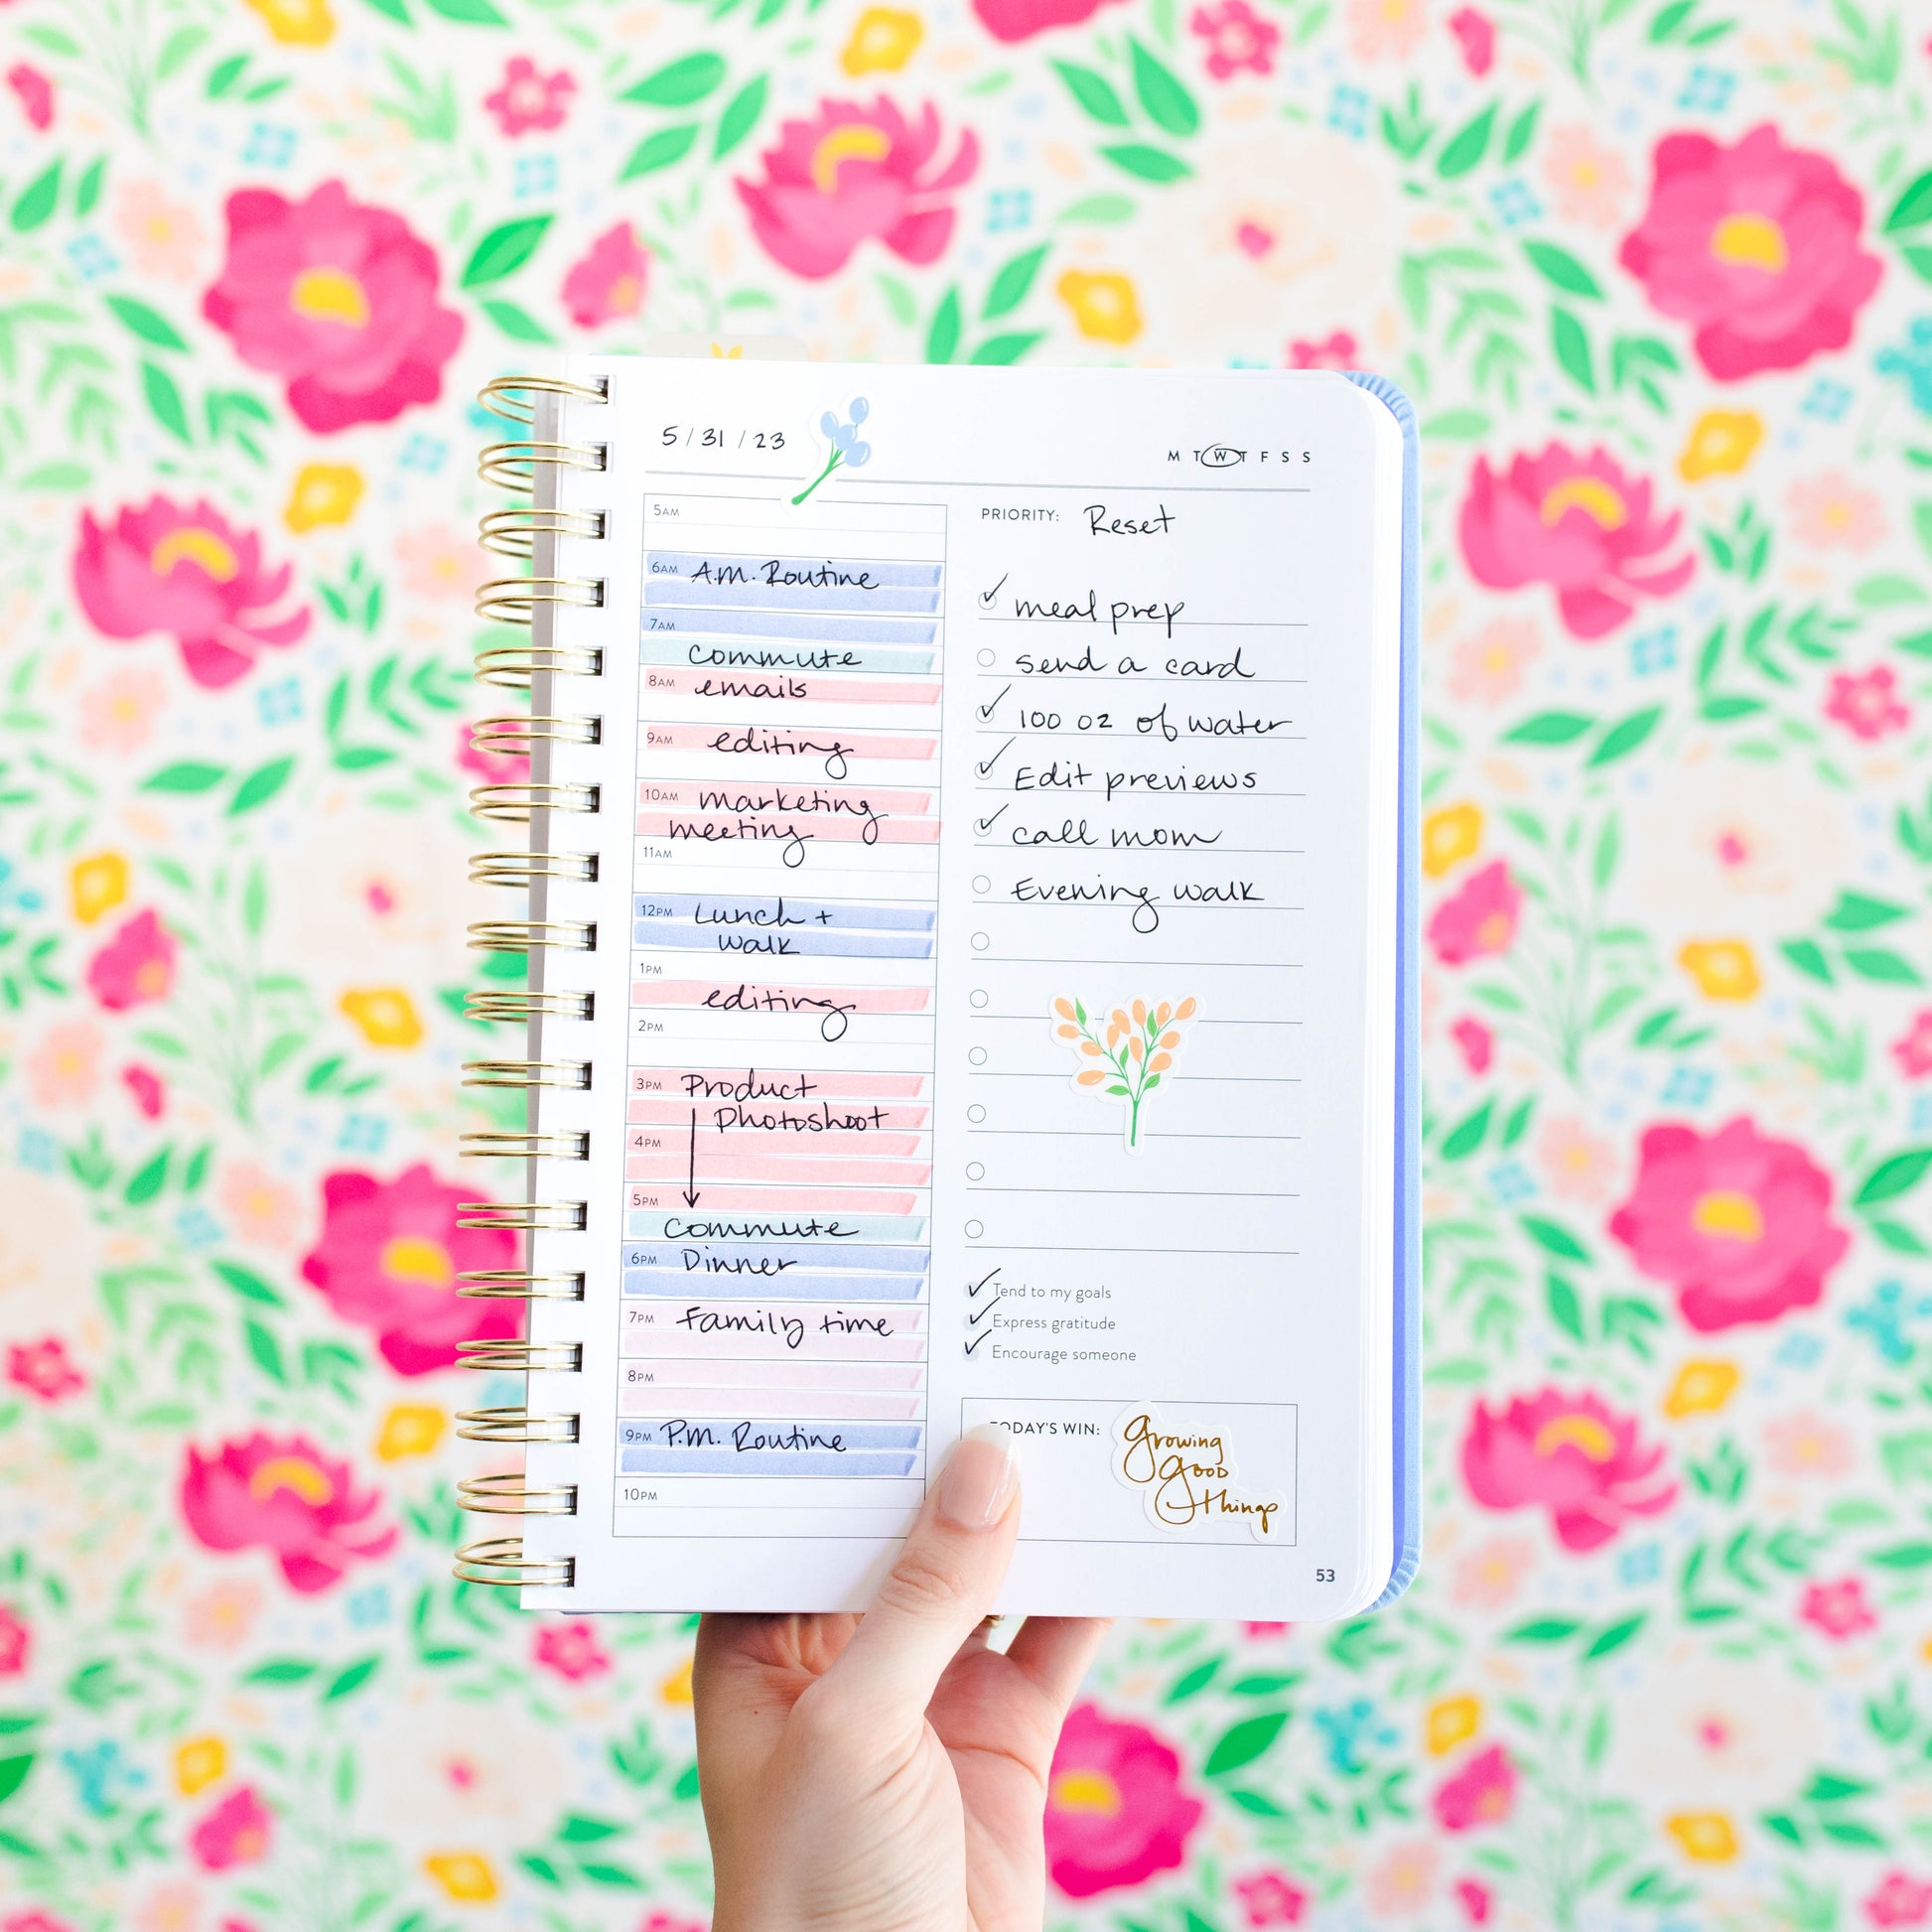 5/31/23
M T W T F S S
5AM
6AM A.M. Routine
7AM
Commute
8AM emails
9AM editing
10AM marketing
meeting
11AM
12PM Lunch +
walk
1PM
editing
2PM
3PM Product
Photoshoot
4PM
5PM
Commute
6PM Dinner
7PM Family time
8PM
9PM P.M. Routine
10PM
PRIORITY: Reset
meal prep
send a card
100 oz of water
Edit previews
call mom
Evening walk
Tend to my goals
Express gratitude
Encourage someone
TODAY'S WIN:
growing
good
things
53